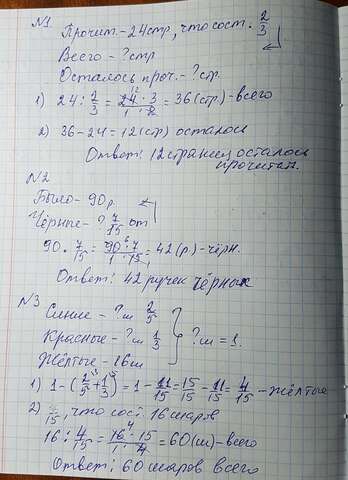 №1
Прочит. - 24 стр, что сост. 2/3
Всего - ? стр
Осталось проч. - ? стр.
1) 24 : 2/3 = 24 · 3 / 1 · 2 = 36 (стр) - всего
2) 36 - 24 = 12 (стр) осталось
Ответ: 12 страниц осталось
прочитат.
№2
Было - 90 р.
Чёрные - ? 7/15 от
90 · 7/15 = 90 · 7 / 1 · 15 = 42 (р) - чёрн.
Ответ: 42 ручек чёрных
№3
Синие - ? ш 2/5
Красные - ? ш 1/3 } ? ш = 1.
Жёлтые - 16 ш
1) 1 - (2/5 + 1/3) = 1 - 11/15 = 15/15 - 11/15 = 4/15 - жёлтые
2) /15, что сост. 16 шаров
16 : 4/15 = 16 · 15 / 1 · 4 = 60 (ш) - всего
Ответ: 60 шаров всего